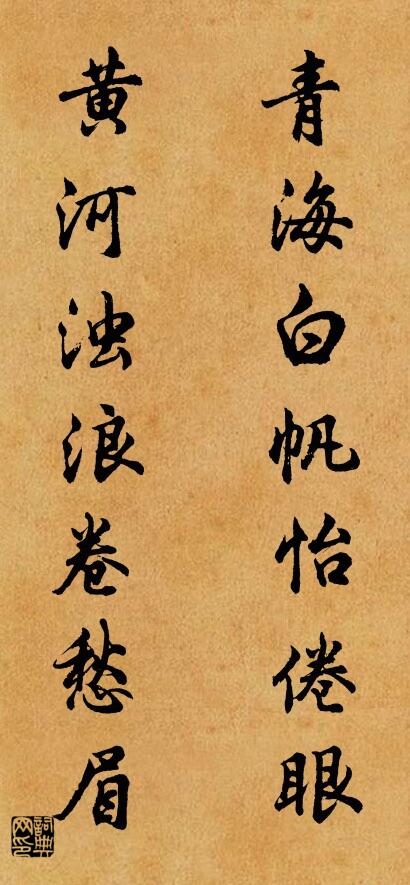 青海白帆怡倦眼
黄河浊浪卷愁眉
词典网印